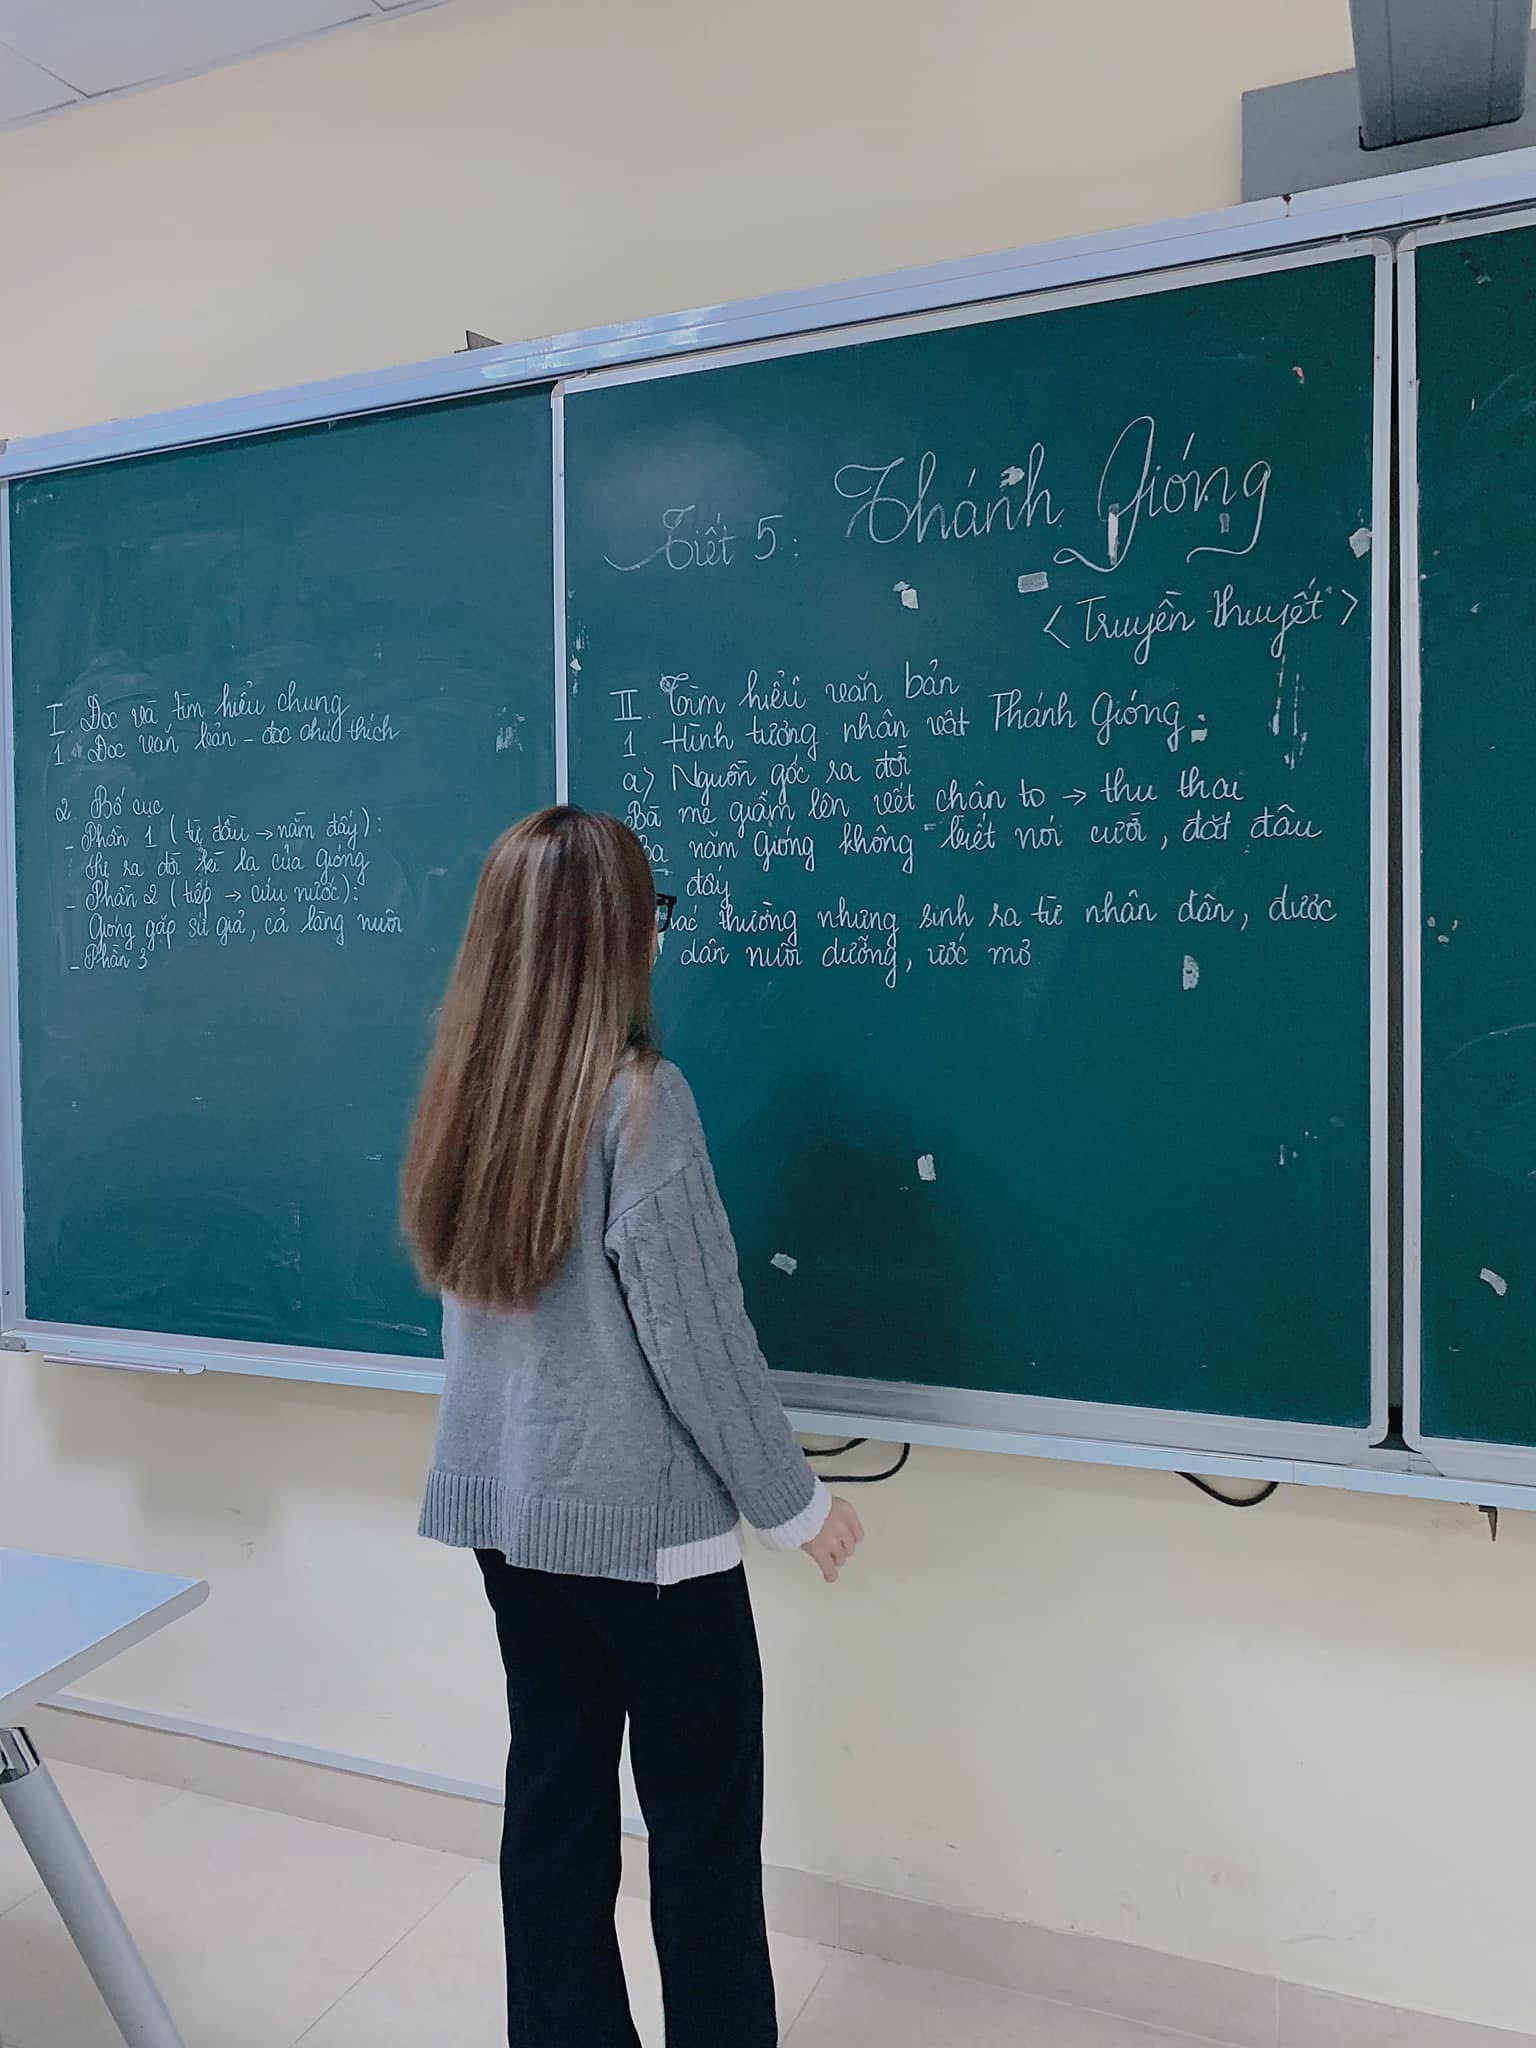 Tiết 5: Thánh Gióng
< Truyền thuyết >
I. Đọc và tìm hiểu chung
1. Đọc văn bản - đọc chú thích
2. Bố cục
- Phần 1 ( từ đầu → nằm đấy ):
Sự ra đời kì lạ của Gióng
- Phần 2 ( tiếp → cứu nước ):
Gióng gặp sứ giả, cả làng nuôi
- Phần 3
II. Tìm hiểu văn bản
1. Hình tượng nhân vật Thánh Gióng
a) Nguồn gốc ra đời
Bà mẹ giẫm lên vết chân to → thụ thai
Ba năm Gióng không biết nói cười, đặt đâu
đấy
thường nhưng sinh ra từ nhân dân, được
dân nuôi dưỡng, ước mơ